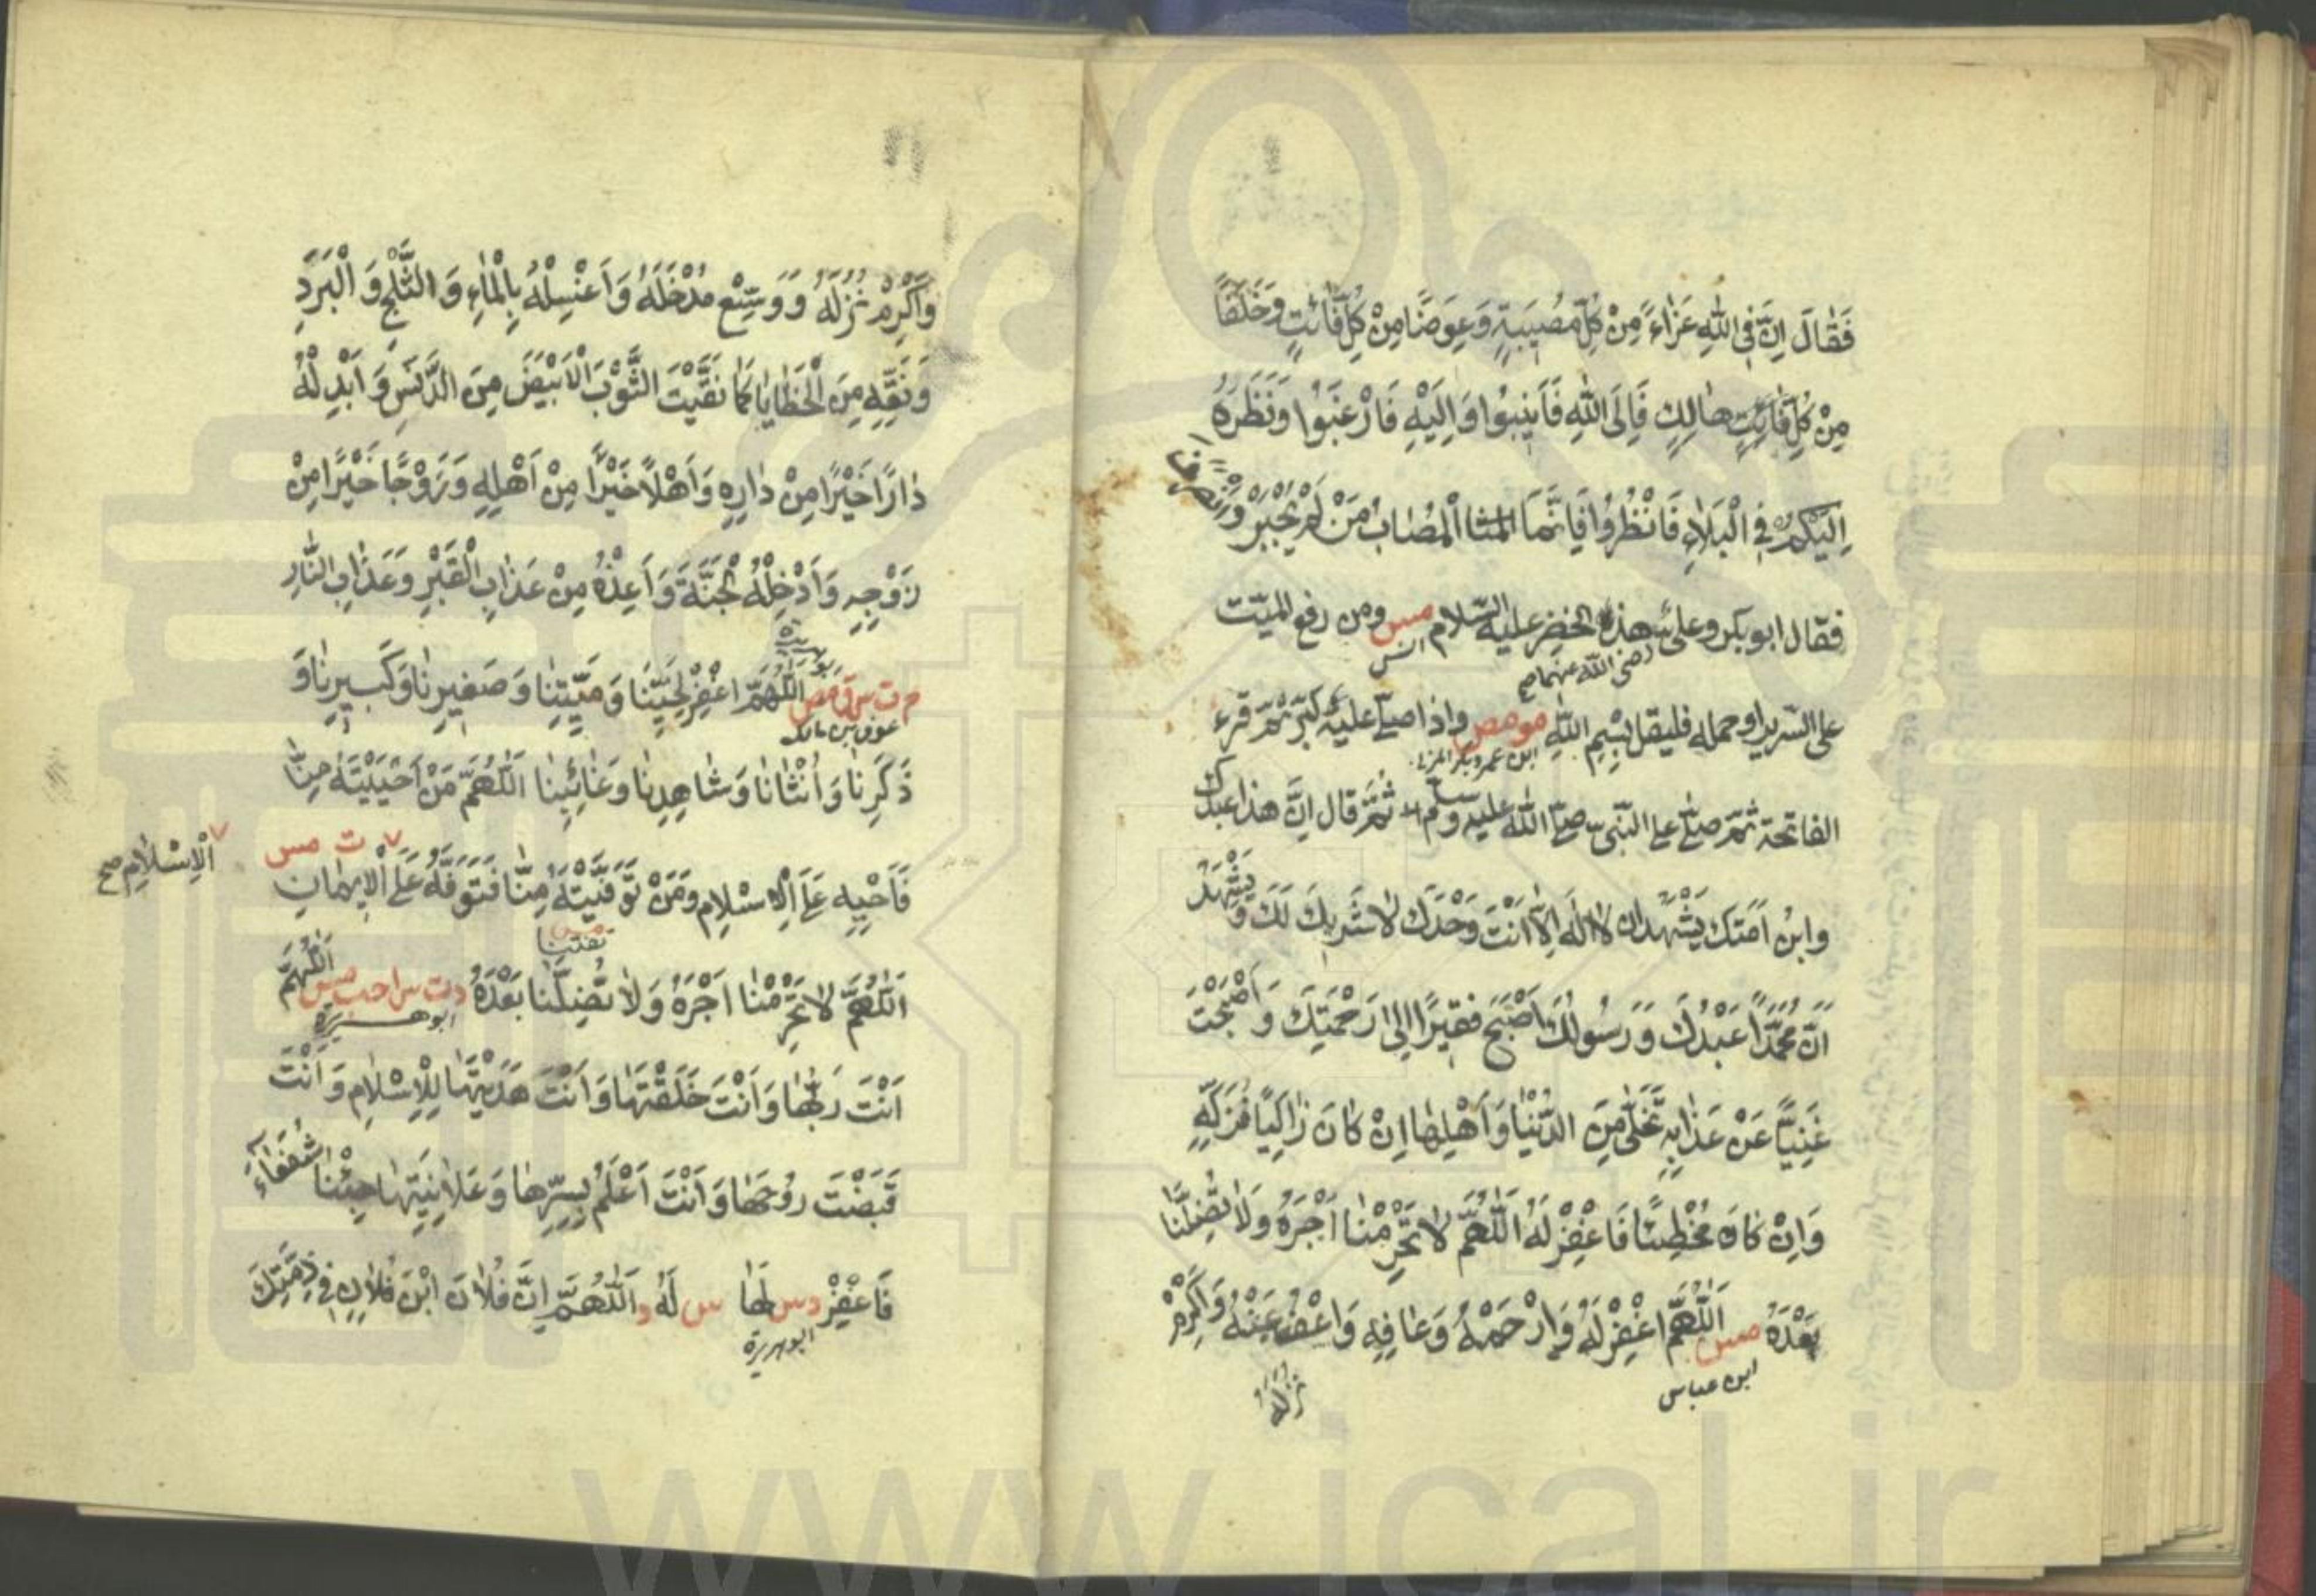 فَقَالَ اِنَّ فِي اللّٰهِ عَزَاءً مِنْ كُلِّ مُصِيبَةٍ وَعِوَضًا مِنْ كُلِّ فَائِتٍ وَخَلَفًا
مِنْ كُلِّ هَالِكٍ فَاِلَى اللّٰهِ فَاَنِيبُوا وَاِلَيْهِ فَارْغَبُوا وَنَظَرُهُ
اِلَيْكُمْ فِي الْبَلَاءِ فَانْظُرُوا فَاِنَّمَا الْمُصَابُ مَنْ لَمْ يُجْبَرْ وَانْصَرَفَ
فقال ابو بكر وعلي هذا الخضر عليه السّلام مس ومن رفع الميّت
انس
رضي الله عنهما صح
على السّرير او حمله فليقل بِسْمِ اللّٰهِ مو مص واذا صلّى عليه كبّر ثمّ قرء
ابن عمر وبكر المزني
الفاتحة ثمّ صلّى على النّبي صلّى اللّٰه عليه وسلم ثُمَّ قال اِنَّ هذا عبدك
وابْنُ اَمَتِكَ يَشْهَدُ ان لَا اِلٰهَ اِلَّا اَنْتَ وَحْدَكَ لَا شَرِيكَ لَكَ وَيَشْهَدُ
اَنَّ مُحَمَّدًا عَبْدُكَ وَرَسُولُكَ اَصْبَحَ فَقِيرًا اِلىٰ رَحْمَتِكَ وَاَصْبَحْتَ
غَنِيًّا عَنْ عَذَابِهِ تَخَلّٰى مِنَ الدُّنْيَا وَاَهْلِهَا اِنْ كَانَ زَاكِيًا فَزَكِّهِ
وَاِنْ كَانَ مُخْطِئًا فَاغْفِرْ لَهُ اَللّٰهُمَّ لَا تَحْرِمْنَا اَجْرَهُ وَلَا تُضِلَّنَا
بَعْدَهُ مس اَللّٰهُمَّ اغْفِرْ لَهُ وَارْحَمْهُ وَعَافِهِ وَاعْفُ عَنْهُ وَاَكْرِمْ
ابن عباس
نُزُلَهُ
وَاَكْرِمْ نُزُلَهُ وَوَسِّعْ مُدْخَلَهُ وَاَغْسِلْهُ بِالْمَاءِ وَالثَّلْجِ وَالْبَرَدِ
وَنَقِّهِ مِنَ الْخَطَايَا كَمَا نَقَّيْتَ الثَّوْبَ الْاَبْيَضَ مِنَ الدَّنَسِ وَاَبْدِلْهُ
دَارًا خَيْرًا مِنْ دَارِهِ وَاَهْلًا خَيْرًا مِنْ اَهْلِهِ وَزَوْجًا خَيْرًا مِنْ
زَوْجِهِ وَاَدْخِلْهُ الْجَنَّةَ وَاَعِذْهُ مِنْ عَذَابِ الْقَبْرِ وَعَذَابِ النَّارِ
م ت س ق مص اَللّٰهُمَّ اغْفِرْ لِحَيِّنَا وَمَيِّتِنَا وَصَغِيرِنَا وَكَبِيرِنَا وَ
عوف بن مالك
ذَكَرِنَا وَاُنْثَانَا وَشَاهِدِنَا وَغَائِبِنَا اَللّٰهُمَّ مَنْ اَحْيَيْتَهُ مِنَّا
ت مس
اَلْاِسْلَامِ صح
فَاَحْيِهِ عَلَى الْاِسْلَامِ وَمَنْ تَوَفَّيْتَهُ مِنَّا فَتَوَفَّهُ عَلَى الْاِيمَانِ
تفتنا
اَللّٰهُمَّ لَا تَحْرِمْنَا اَجْرَهُ وَلَا تُضِلَّنَا بَعْدَهُ د ت س ا حب مس اَللّٰهُمَّ
ابو هريرة
اَنْتَ رَبُّهَا وَاَنْتَ خَلَقْتَهَا وَاَنْتَ هَدَيْتَهَا لِلْاِسْلَامِ وَاَنْتَ
قَبَضْتَ رُوحَهَا وَاَنْتَ اَعْلَمُ بِسِرِّهَا وَعَلَانِيَتِهَا جِئْنَا شُفَعَاءَ
فَاغْفِرْ د س لَهَا س لَهُ د اَللّٰهُمَّ اِنَّ فُلَانَ ابْنَ فُلَانٍ فِي ذِمَّتِكَ
ابو هريرة
www.ical.ir